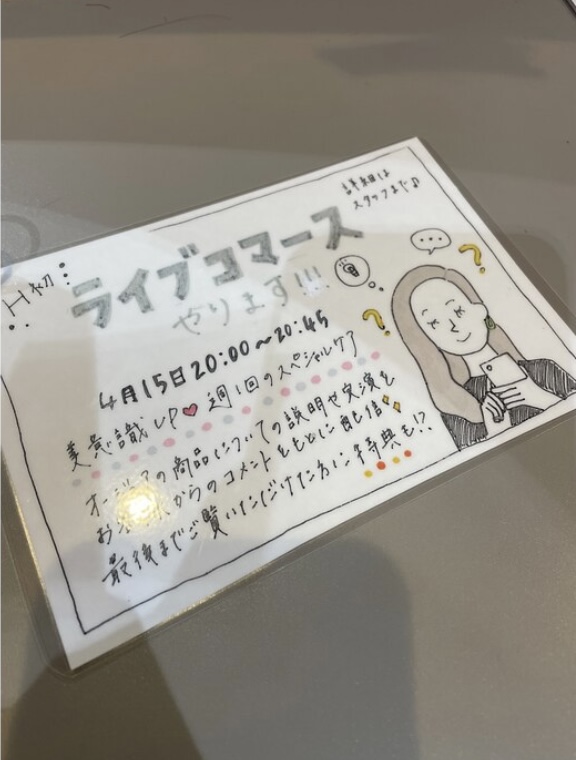 詳細は
スタッフまで♪
H初
ライブコマース
やります!!!
4月15日20:00〜20:45
美意識UP♥ 週1回のスペシャルケア
オージュアの商品についての説明や実演を
お客様からのコメントをもとに配信✨
最後までご覧いただけた方に特典も!?